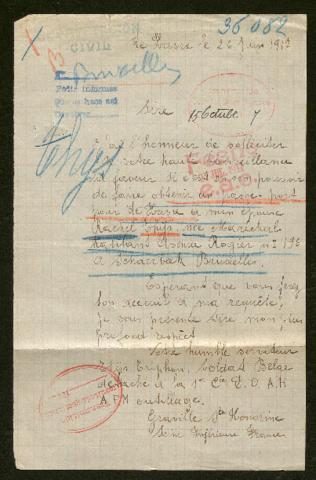 36062
Le Havre le 26 Juin 1917
CIVIL
Bruxelles
Sire
15 Octobre 7
J'ai l'honneur de solliciter
votre haute bienveillance
en faveur de
de faire obtenir un passe-port
pour le Havre à mon épouse
Rachel Thys, née Maréchal
habitant Avenue Rogier n° 198
à Schaerbeek Bruxelles.
Thys
Espérant que vous ferez
bon accueil à ma requête,
je vous présente Sire mon plus
profond respect
Votre humble serviteur
Thys Soldat Belge
détaché à la 1re Cie E.O.A.H
A.F.M outillage.
Graville Ste Honorine
Seine Inférieure France